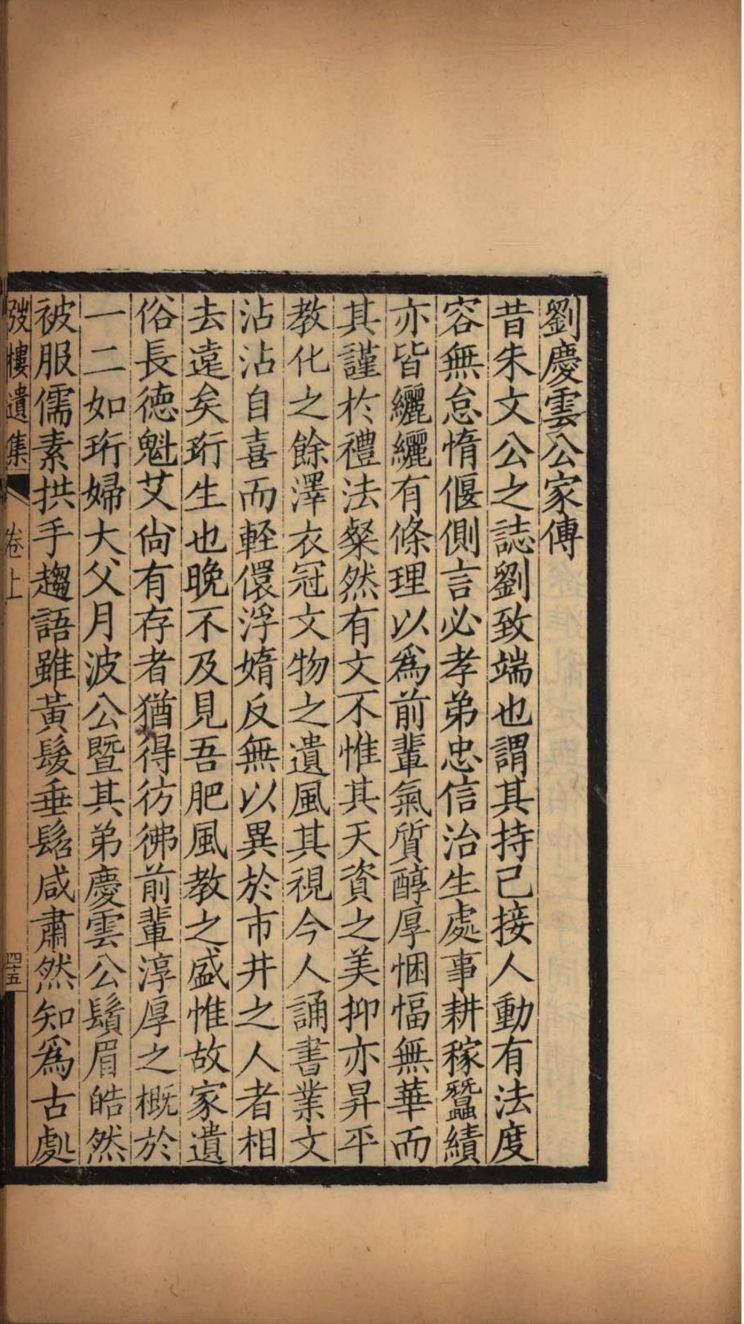 劉慶雲公家傳
昔朱文公之誌劉致端也謂其持己接人動有法度
容無怠惰偃側言必孝弟忠信治生處事耕稼蠶績
亦皆纚纚有條理以爲前輩氣質醇厚悃愊無華而
其謹於禮法粲然有文不惟其天資之美抑亦昇平
教化之餘澤衣冠文物之遺風其視今人誦書業文
沾沾自喜而輕儇浮媠反無以異於市井之人者相
去遠矣珩生也晚不及見吾肥風教之盛惟故家遺
俗長德魁艾尙有存者猶得彷彿前輩淳厚之概於
一二如珩婦大父月波公暨其弟慶雲公鬚眉皓然
被服儒素拱手趨語雖黃髮垂髫咸肅然知爲古處
弢樓遺集
卷上
四十五